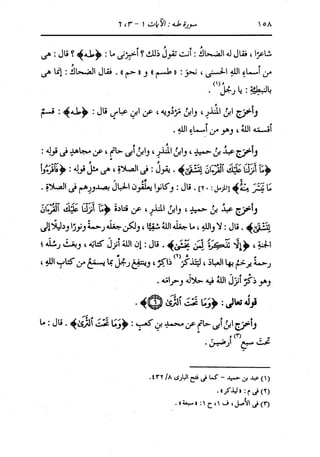 ١٥٨ سورة طه : الآيات ١ - ٣، ٦
شاعرًا، فقال له الضحاك: أنت تقولُ ذلك؟ أخبِرْني ما: ﴿طه﴾؟ قال: هى
من أسماءِ اللهِ الحسنى، نحوَ: «طسم» و«حم». فقال الضحاك: إنما هى
بالنبطيةِ: يا رجلُ(١).
وأخرَج ابنُ المنذرِ، وابنُ مَرْدُويه، عن ابنِ عباسٍ قال: ﴿طه﴾: قسمٌ
أقسمه اللهُ، وهو من أسماءِ اللهِ.
وأخرَج عبدُ بنُ حميدٍ، وابنُ المنذرِ، وابنُ أبى حاتمٍ، عن مجاهدٍ فى قولِه:
﴿مَا أَنْزَلْنَا عَلَيْكَ الْقُرْآنَ لِتَشْقَى﴾. يقولُ: فى الصلاةِ، هى مثلُ قولِه: ﴿فَاقْرَءُوا
مَا تَيَسَّرَ مِنْهُ﴾ [المزمل: ٢٠]. قال: وكانوا يعلِّقون الحبالَ بصدورِهم فى الصلاةِ.
وأخرَج عبدُ بنُ حميدٍ، وابنُ المنذرِ، عن قتادةَ ﴿مَا أَنْزَلْنَا عَلَيْكَ الْقُرْآنَ
لِتَشْقَى﴾. قال: لا واللهِ، ما جعَله اللهُ شقيًّا، ولكن جعَله رحمةً ونورًا ودليلًا إلى
الجنةِ، ﴿إِلَّا تَذْكِرَةً لِمَنْ يَخْشَى﴾. قال: إن اللهَ أنزَل كتابَه، وبعَث رسلَه؛
رحمةً يرحَمُ بها العبادَ، ليتذكرَ(٢) ذاكرٌ، وينتفِعَ رجلٌ بما يسمَعُ من كتابِ اللهِ،
وهو ذكرٌ أنزَل اللهُ فيه حلالَه وحرامَه.
قولُه تعالى: ﴿وَمَا تَحْتَ الثَّرَى ٦﴾.
وأخرَج ابنُ أبى حاتمٍ عن محمدِ بنِ كعبٍ: ﴿وَمَا تَحْتَ الثَّرَى﴾. قال: ما
تحتَ سبعِ(٣) أرضينَ.
(١) عبد بن حميد - كما فى فتح البارى ٨/ ٤٣٢.
(٢) فى م: «ليذكر».
(٣) فى الأصل، ف ١، ح ١: «سبعة».